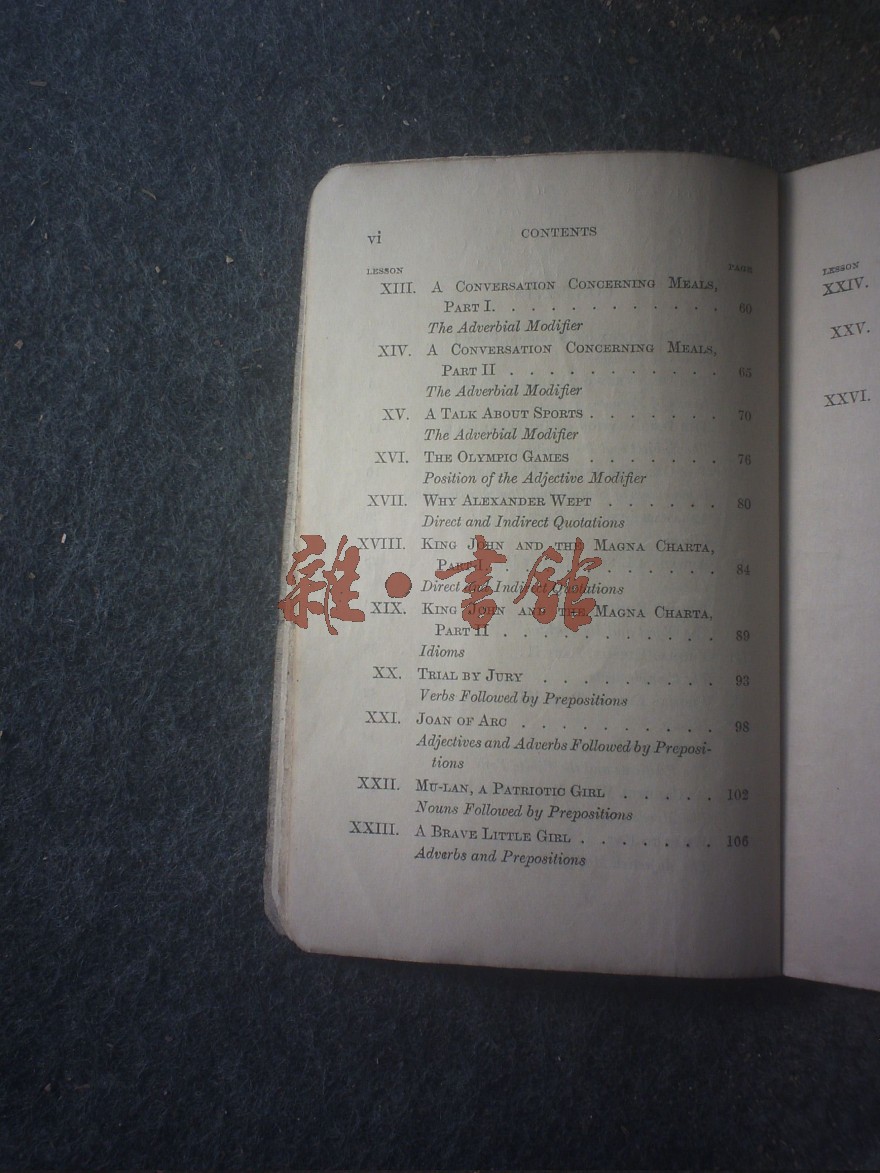 vi CONTENTS
LESSON PAGE
XIII. A CONVERSATION CONCERNING MEALS,
PART I. . . . . . . . . . . . 60
The Adverbial Modifier
XIV. A CONVERSATION CONCERNING MEALS,
PART II . . . . . . . . . . . 65
The Adverbial Modifier
XV. A TALK ABOUT SPORTS . . . . . . . 70
The Adverbial Modifier
XVI. THE OLYMPIC GAMES . . . . . . . 76
Position of the Adjective Modifier
XVII. WHY ALEXANDER WEPT . . . . . . 80
Direct and Indirect Quotations
XVIII. KING JOHN AND THE MAGNA CHARTA,
PART I. . . . . . . . . . . . 84
Direct and Indirect Quotations
XIX. KING JOHN AND THE MAGNA CHARTA,
PART II . . . . . . . . . . . 89
Idioms
XX. TRIAL BY JURY . . . . . . . . . 93
Verbs Followed by Prepositions
XXI. JOAN OF ARC . . . . . . . . . 98
Adjectives and Adverbs Followed by Preposi-
tions
XXII. MU-LAN, A PATRIOTIC GIRL . . . . . 102
Nouns Followed by Prepositions
XXIII. A BRAVE LITTLE GIRL . . . . . . . 106
Adverbs and Prepositions
LESSON
XXIV.
XXV.
XXVI.
雜·書館